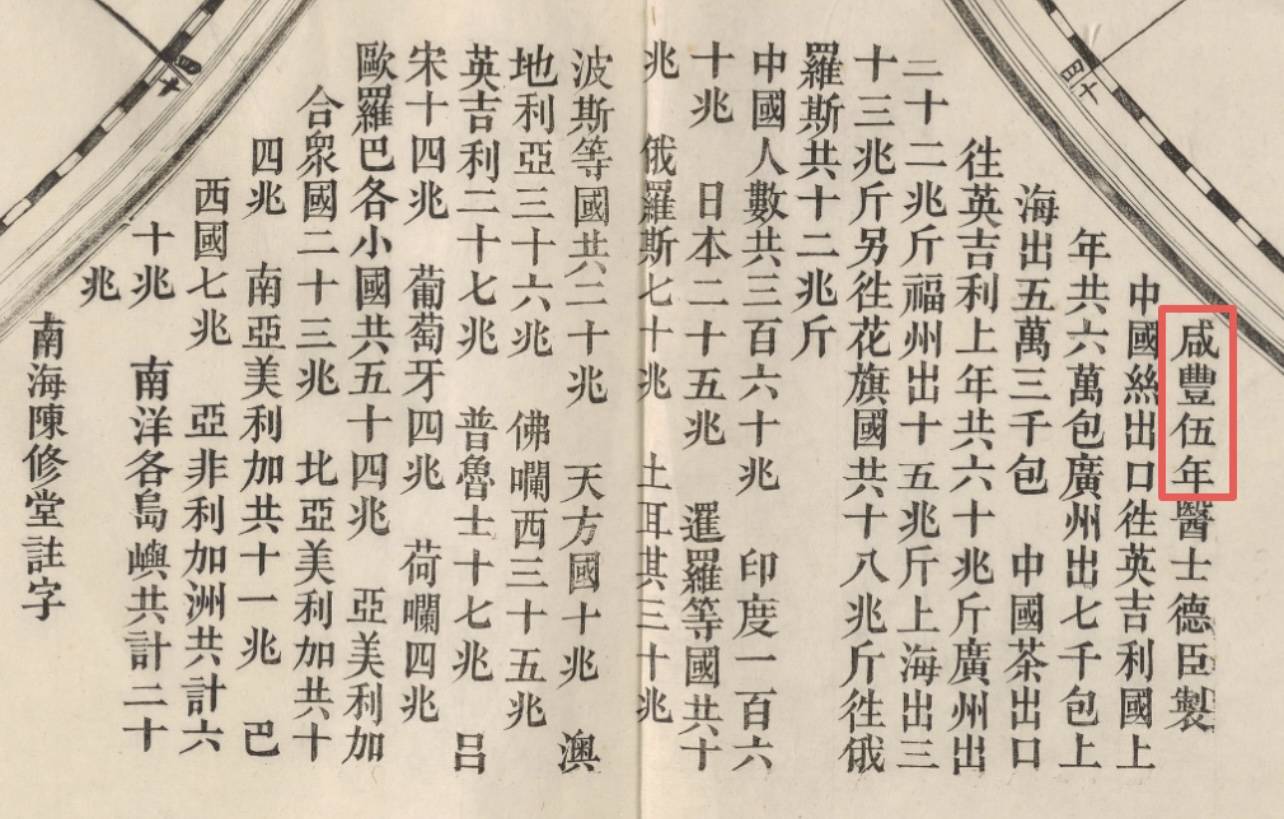 咸豐伍年醫士德臣製
中國絲出口徃英吉利國上
年共六萬包廣州出七千包上
海出五萬三千包　中國茶出口
徃英吉利上年共六十兆斤廣州出
二十二兆斤福州出十五兆斤上海出三
十三兆斤另徃花旗國共十八兆斤徃俄
羅斯共十二兆斤
中國人數共三百六十兆　印度一百六
十兆　日本二十五兆　暹羅等國共十
兆　俄羅斯七十兆　土耳其三十兆
波斯等國共二十兆　天方國十兆　澳
地利亞三十六兆　佛囒西三十五兆
英吉利二十七兆　普魯士十七兆　呂
宋十四兆　葡萄牙四兆　荷囒四兆
歐羅巴各小國共五十四兆　亞美利加
合眾國二十三兆　北亞美利加共十
四兆　南亞美利加共十一兆　巴
西國七兆　亞非利加洲共計六
十兆　南洋各島嶼共計二十
兆
南海陳修堂註字
四十
四十